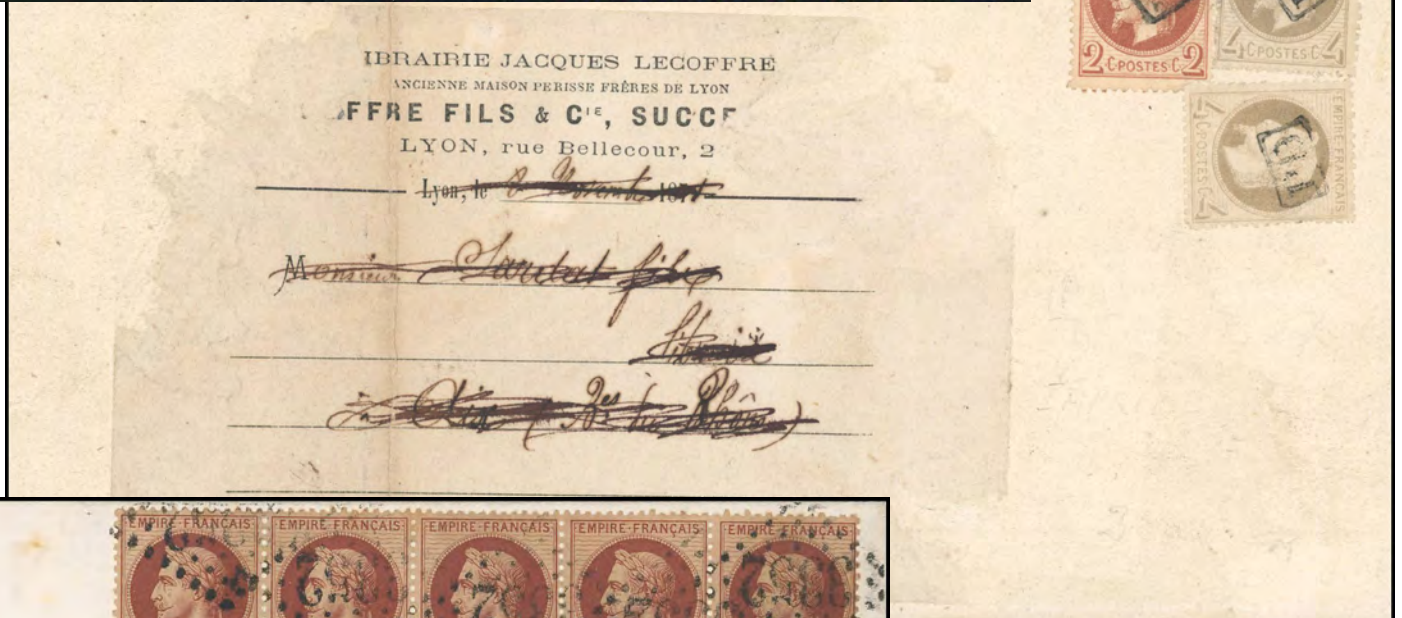 IBRAIRIE JACQUES LECOFFRE
ANCIENNE MAISON PERISSE FRÈRES DE LYON
FFRE FILS & Cie, SUCCE
LYON, rue Bellecour, 2
Lyon, le 8 Novembre 187
Monsieur fils
à Aix (Bes du Rhône)
2 C POSTES C 2
4 C POSTES C 4
EMPIRE FRANÇAIS
4 C POSTES C 4
EMPIRE-FRANÇAIS
EMPIRE-FRANÇAIS
EMPIRE-FRANÇAIS
EMPIRE-FRANÇAIS
EMPIRE-FRANÇAIS